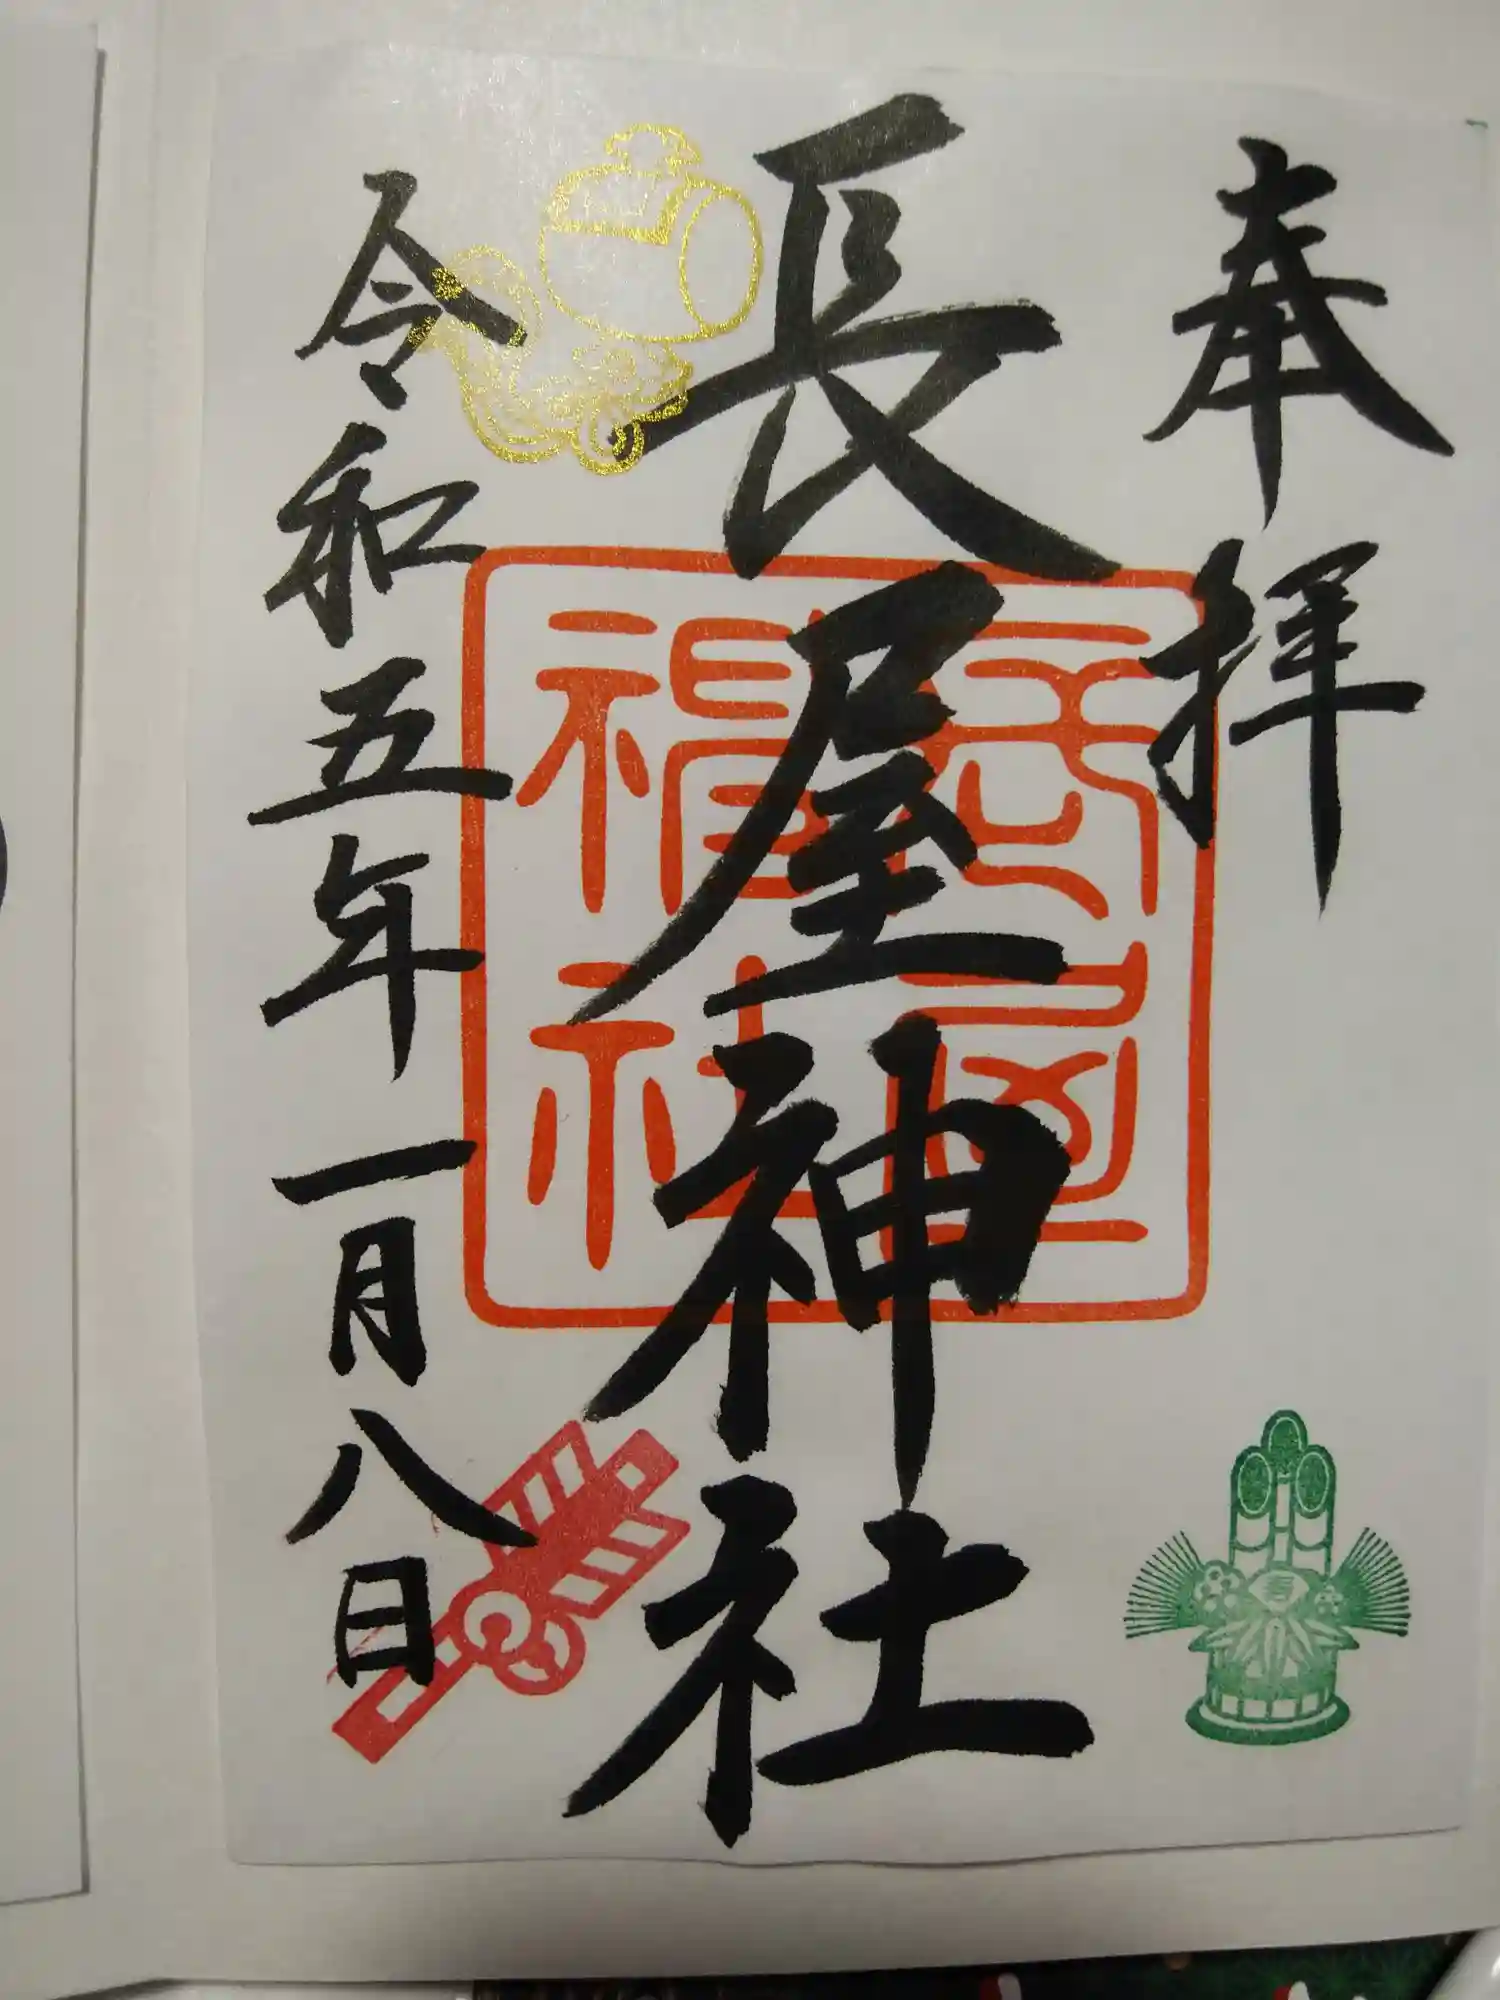 奉拝
長屋神社
長屋神社
令和五年一月八日